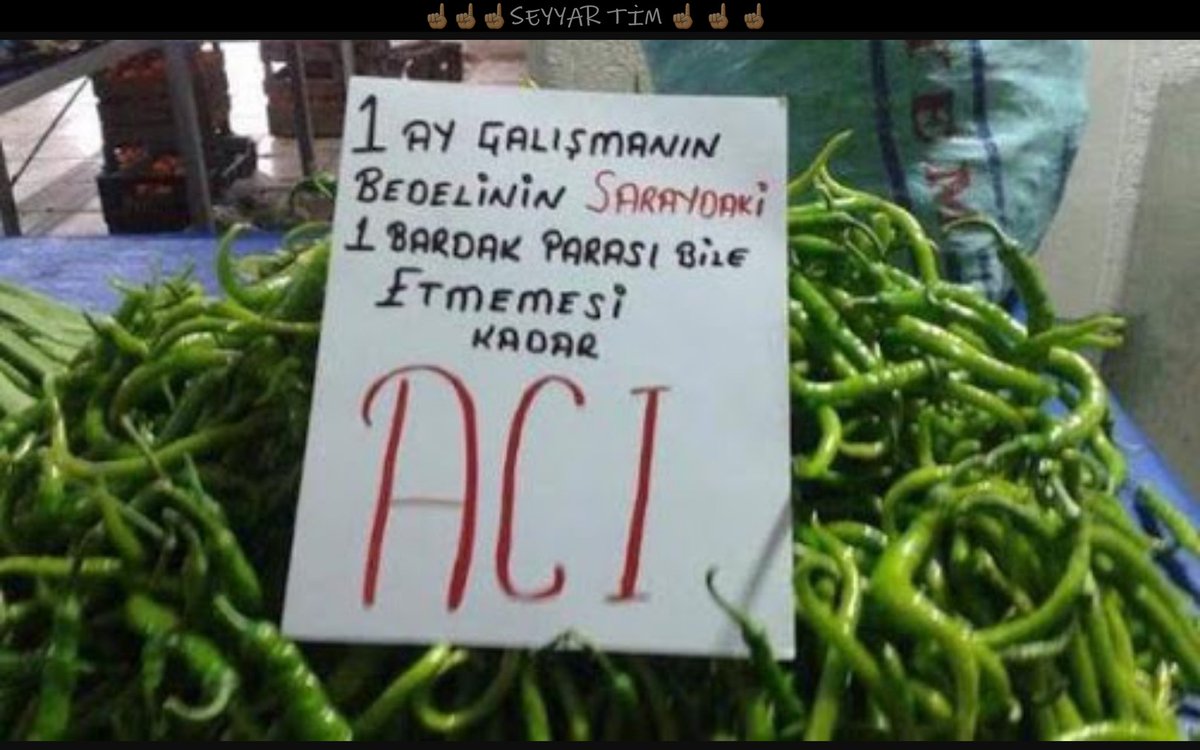 ☝🏾☝🏾☝🏾SEYYAR TİM ☝🏾 ☝🏾 ☝🏾
1 AY ÇALIŞMANIN
BEDELİNİN SARAYDAKİ
1 BARDAK PARASI BİLE
ETMEMESİ
KADAR
ACI